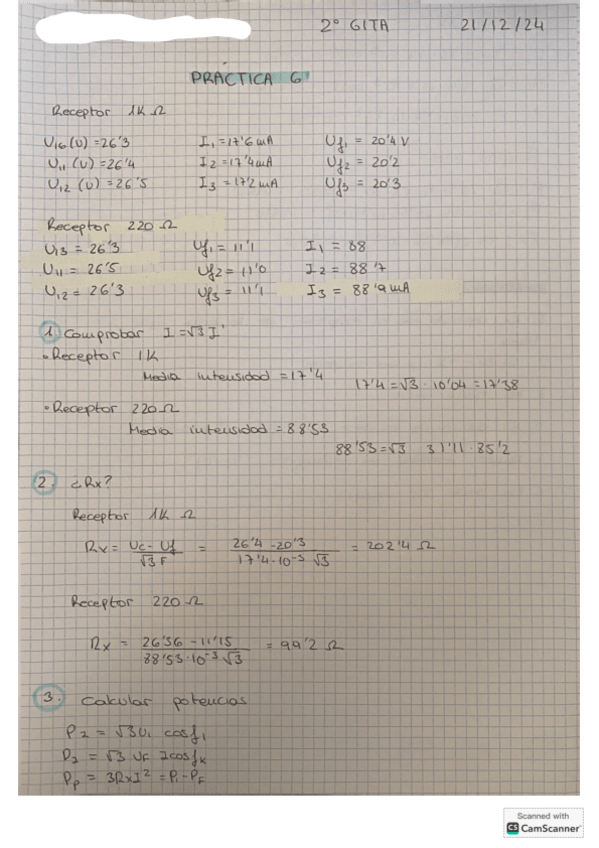 2º GITA 21/12/24
PRÁCTICA 6
Receptor 1K Ω
U16 (V) = 26'3 I1 = 17'6 mA Uf1 = 20'4 V
U11 (V) = 26'4 I2 = 17'4 mA Uf2 = 20'2
U12 (V) = 26'5 I3 = 17'2 mA Uf3 = 20'3
Receptor 220 Ω
U13 = 26'3 Uf1 = 11'1 I1 = 88
U11 = 26'5 Uf2 = 11'0 I2 = 88'7
U12 = 26'3 Uf3 = 11'1 I3 = 88'9 mA
1. Comprobar I = √3 I'
• Receptor 1K
Media intensidad = 17'4 17'4 = √3 · 10'04 = 17'38
• Receptor 220 Ω
Media intensidad = 88'53
88'53 = √3 31'11 · 85'2
2. ¿Rx?
Receptor 1K Ω
Rx = Uc - Uf / √3 F = 26'4 - 20'3 / 17'4·10⁻³ √3 = 202'4 Ω
Receptor 220 Ω
Rx = 26'36 - 11'15 / 88'53·10⁻³ √3 = 99'2 Ω
3. Calcular potencias
P2 = √3 U1 cosf1
P2 = √3 UF I cosfk
Pp = 3RxI² = Pi - PF
Scanned with
CS CamScanner